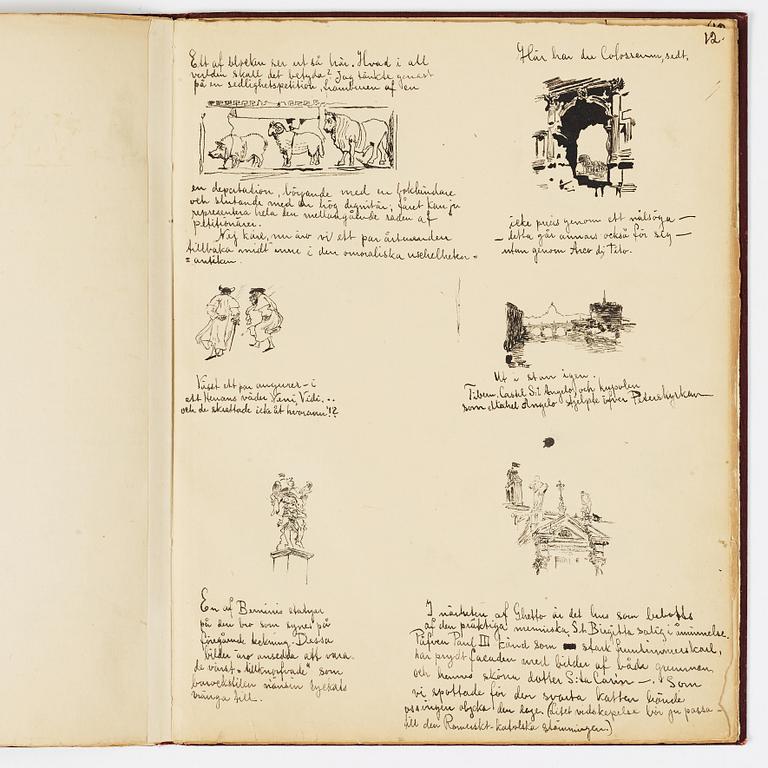 12.
Ett af blocken ser ut så här. Hvad i all
verlden skall det betyda? Jag tänkte genast
på en sedlighetspetition, frambruen af en
en deputation, börjande med en bokbindare
och slutande med en hög dignitär; fåret kan ju
representera hela den mellangående raden af
petitionärer.
Nej kära, nu äro vi ett par årtusenden
tillbaka midt inne i den omoraliska
= antiken.
Här har du Colosseum, sedt,
icke precis genom ett nålsöga —
— detta går annars också för sig —
utan genom Arco di Tito.
Visst ett par augurer — i
ett Henans väder Veni, Vidi, ..
och de skrattade icke åt hvarann!?
Ut i stan igen.
Tibern. Castel S:t Angelo och kupolen
som Mikel Angelo stjelpte öfver Peterskyrkan
En af Berninis statyer
på den bro som synes på
föregående teckning. Dessa
bilder äro ansedda att vara
de värst "tillknöpfvade" som
barockstilen nånsin lyckats
vränga till.
I närheten af Ghetto är det hus som bebotts
af den präktiga menniska, S:ta Birgitta salig i åminnelse.
Påfven Paul III känd som stark fruntimmerskarl,
har prydt facaden med bilder af både gumman
och hennes sköna dotter S:ta Carin —. Som
vi spottade för den svarta katten hände
oss ingen olycka den dage. (Litet vidskepelse bör ju passa
till den Romerskt-katolska stämningen.)